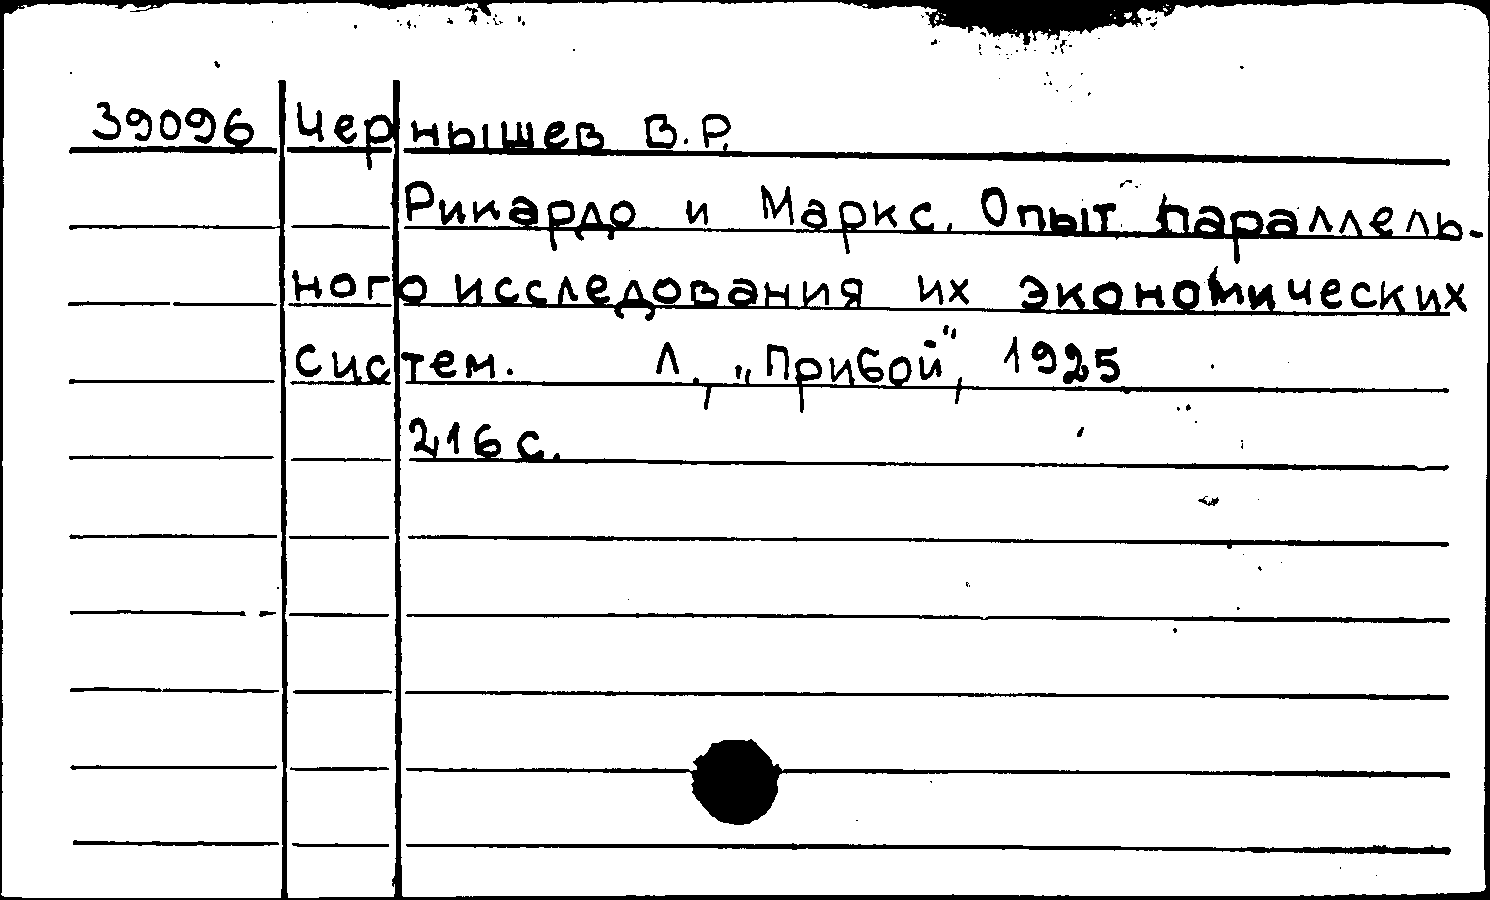 39096 Чернышев В.Р.
Рикардо и Маркс. Опыт параллель-
ного исследования их экономических
систем. Л., „Прибой", 1925
216 с.